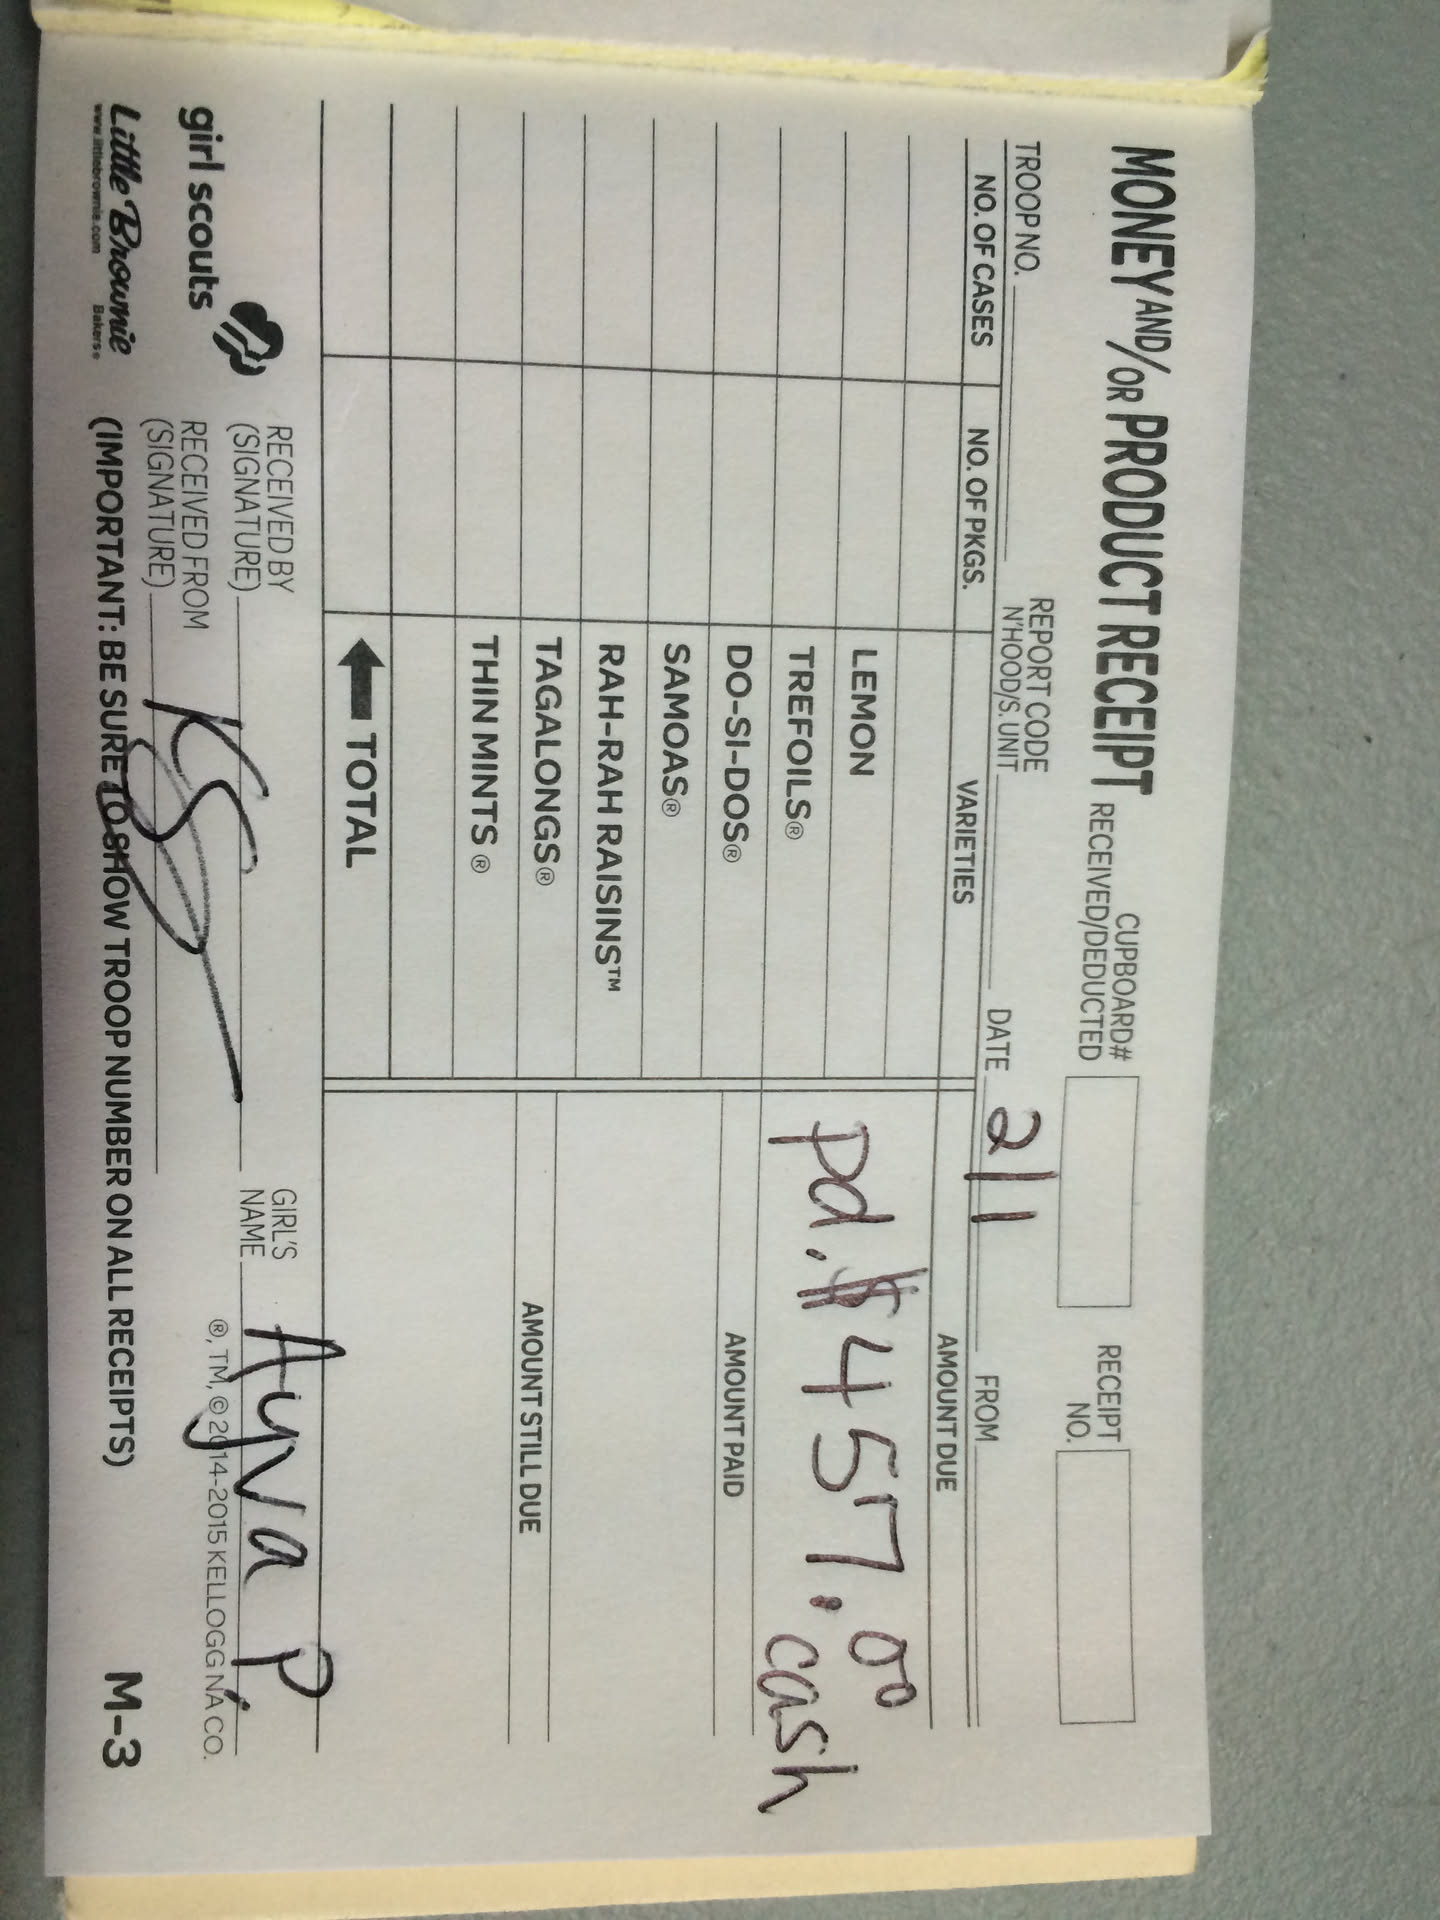 MONEY AND/OR PRODUCT RECEIPT
CUPBOARD#
RECEIVED/DEDUCTED
RECEIPT
NO.
TROOP NO.
REPORT CODE
N'HOOD/S. UNIT
DATE 2/1
FROM
NO. OF CASES NO. OF PKGS. VARIETIES AMOUNT DUE
pd. $457.00
cash
LEMON
TREFOILS®
DO-SI-DOS® AMOUNT PAID
SAMOAS®
RAH-RAH RAISINS™
TAGALONGS® AMOUNT STILL DUE
THIN MINTS®
TOTAL
girl scouts
Little Brownie
Bakers®
www.littlebrownie.com
RECEIVED BY
(SIGNATURE)
GIRL'S
NAME Ayva P.
RECEIVED FROM
(SIGNATURE)
®, TM, © 2014-2015 KELLOGG NA CO.
(IMPORTANT: BE SURE TO SHOW TROOP NUMBER ON ALL RECEIPTS) M-3